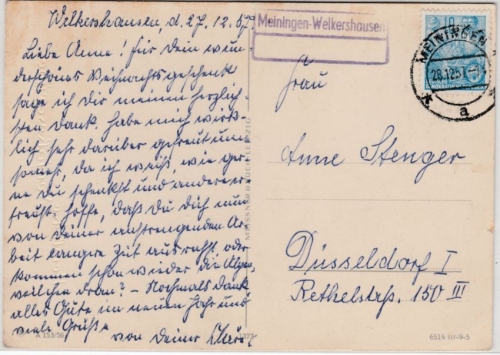 Welkershausen, d. 27.12.57
Liebe Anne! Für Dein wun-
derschönes Weihnachtsgeschenk
sage ich Dir meinen herzlich-
sten Dank. Habe mich wirk-
lich sehr darüber gefreut um
so mehr, da ich weiß, wie ger-
ne Du schenkst und andere er-
freust. Hoffe, daß Du Dich nun
von Deiner anstrengenden Ar-
beit längere Zeit ausruhst, oder
kommen schon wieder die
weilchen dran? – Nochmals Dank
alles Gute im neuen Jahr und
viele Grüße
von Deiner
Meiningen-Welkershausen
MEININGEN
28.12.57
a
Frau
Anne Stenger
Düsseldorf I
Rethelstr. 150 III
A 153/56
6519 III-9-5